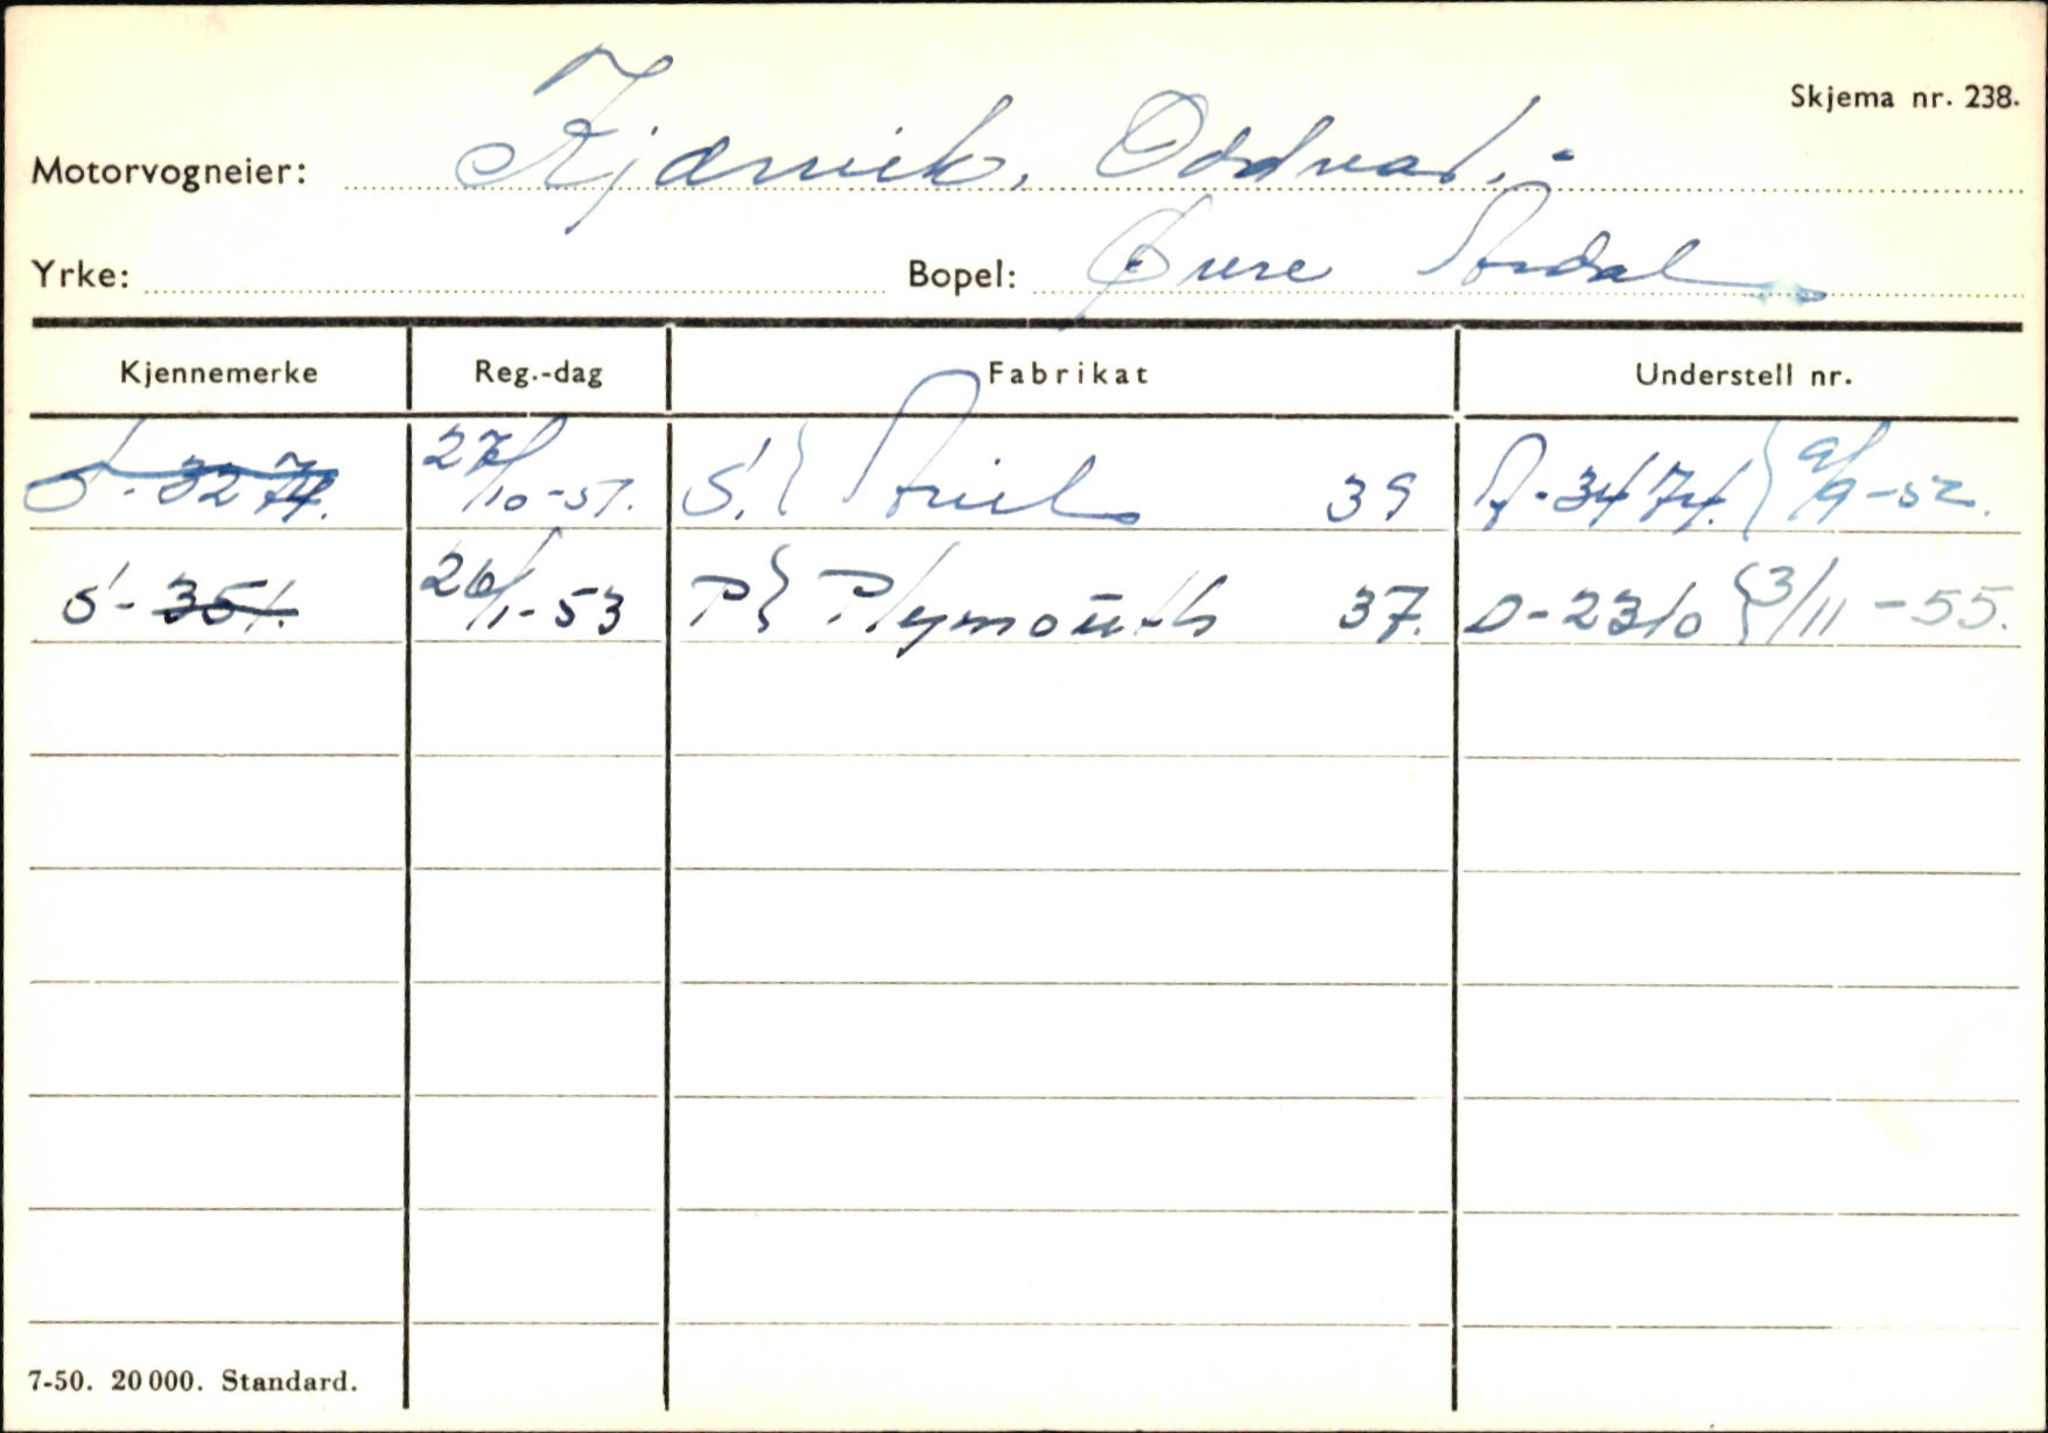 Skjema nr. 238.
Motorvogneier: Kjærvik, Oddvar.-
Yrke: Bopel: Øvre Årdal
Kjennemerke Reg.-dag Fabrikat Understell nr.
S-3274. 27/10-51. S.} Ariel 39 A-3474.} 9/9-52.
S-351. 26/1-53 P} Plymouth 37. D-2310 {3/11-55.
7-50. 20 000. Standard.